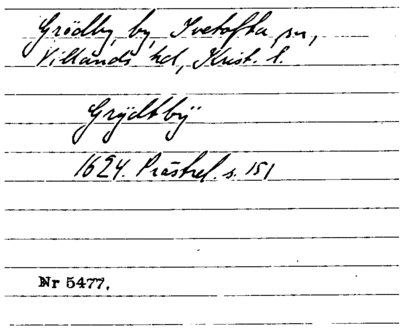 Grödby, by, Ivetofta sn,
Villands hd, Krist. l.
Grÿdtbÿ
1624. Prästrel. s. 151
Nr 5477.